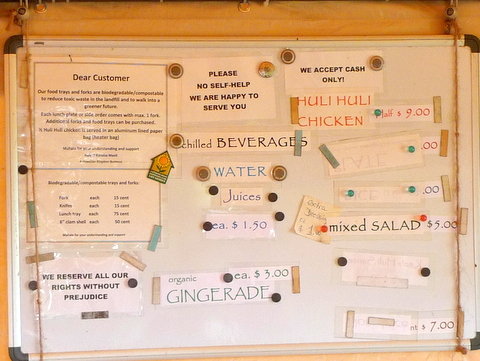 Dear Customer
Our food trays and forks are biodegradable/compostable
to reduce toxic waste in the landfill and to walk into a
greener future.
Each lunch plate or side order comes with max. 1 fork.
Additional forks and food trays can be purchased.
½ Huli Huli chicken is served in an aluminum lined paper
bag (heater bag)
Mahalo for your understanding and support
Biodegradable/compostable trays and forks
Fork each 15 cent
Knifes each 15 cent
Lunch tray each 75 cent
6" clam shell each 50 cent
Mahalo for your understanding and support
WE RESERVE ALL OUR
RIGHTS WITHOUT
PREJUDICE
PLEASE
NO SELF-HELP
WE ARE HAPPY TO
SERVE YOU
chilled BEVERAGES
WATER
Juices
ea. $ 1.50
organic ea. $ 3.00
GINGERADE
WE ACCEPT CASH
ONLY!
HULI HULI
CHICKEN Half $ 9.00
.00
.00
mixed SALAD $5.00
$ 7.00